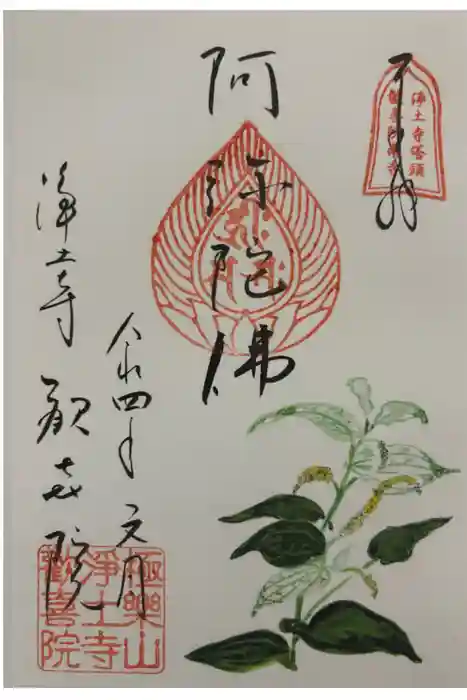 奉拝
浄土寺塔頭
歓喜院
阿弥陀佛
令和四年
元月
浄土寺 歓喜院
極樂山
浄土寺
歡喜院